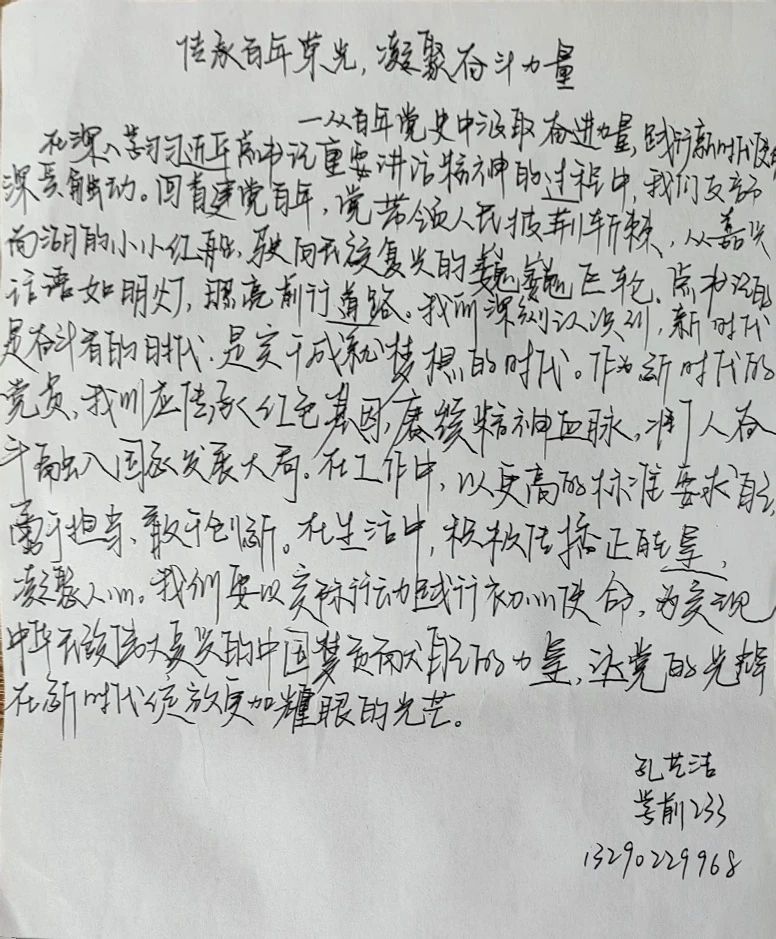 传承百年荣光，凝聚奋斗力量
—从百年党史中汲取奋进力量，践行新时代使
在深入学习习近平总书记重要讲话精神的过程中，我们
深受触动。回首建党百年，党带领人民披荆斩棘，从嘉兴
南湖的小小红船，驶向民族复兴的巍巍巨轮。总书记的
话语如明灯，照亮前行道路。我们深刻认识到，新时代
是奋斗者的时代，是实干成就梦想的时代。作为新时代的
党员，我们应传承红色基因，赓续精神血脉，将个人奋
斗融入国家发展大局。在工作中，以更高的标准要求自己，
勇于担当、敢于创新。在生活中，积极传播正能量，
凝聚人心。我们要以实际行动践行初心使命，为实现
中华民族伟大复兴的中国梦贡献自己的力量，让党的光辉
在新时代绽放更加耀眼的光芒。
孔艺洁
学前233
13290229968